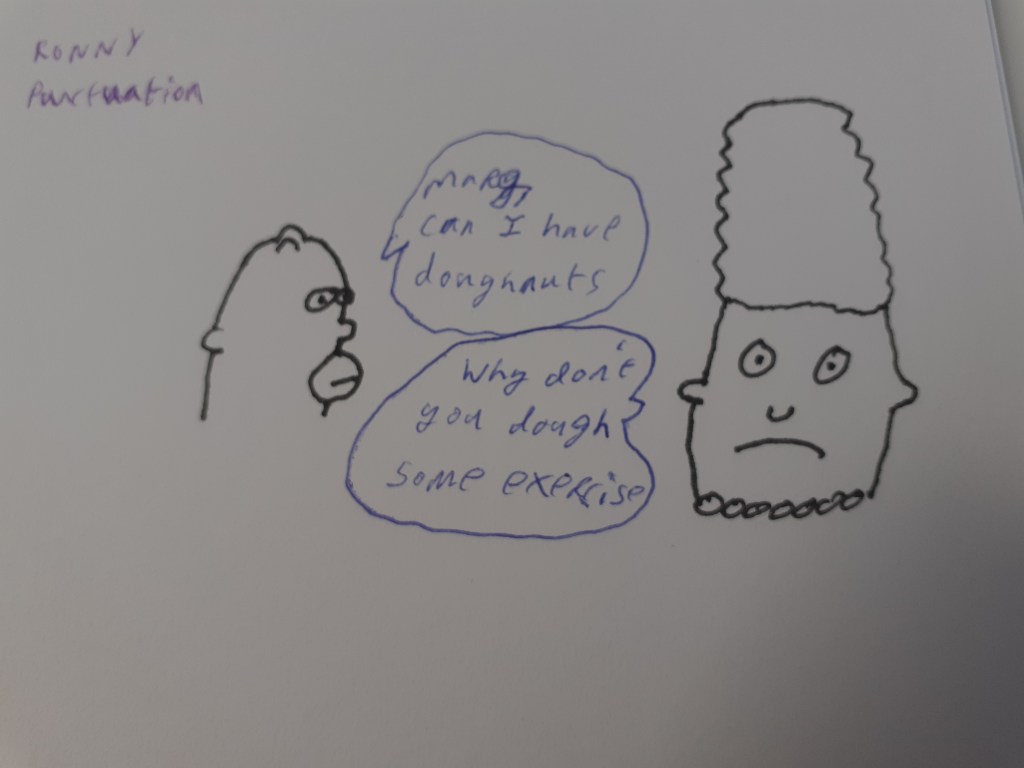 RONNY
Punctuation
marg,
can I have
doughnauts
Why don't
you dough
some exercise